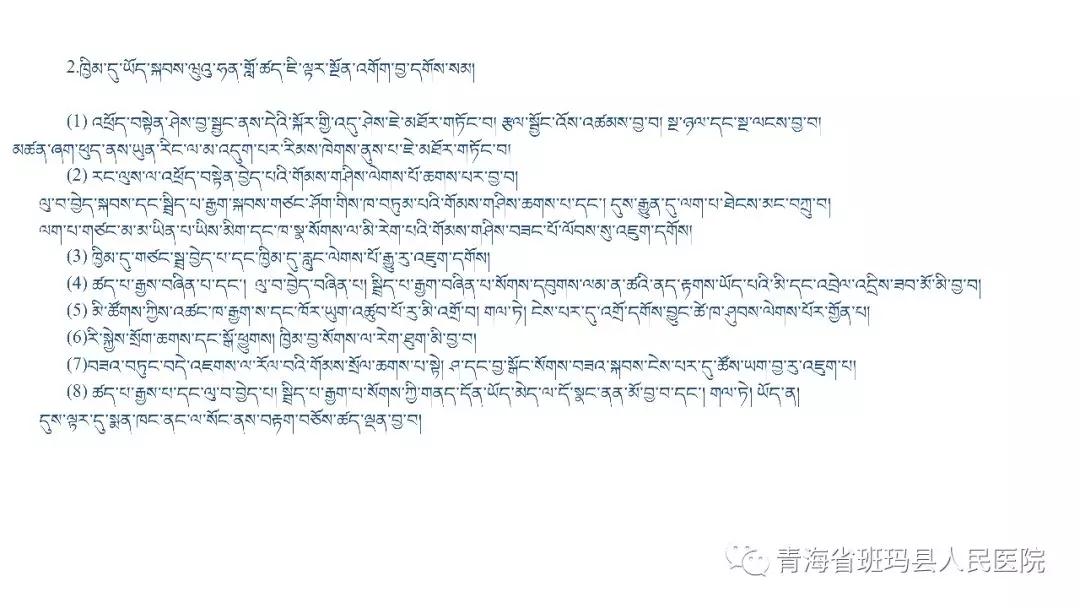 2.ཁྱིམ་དུ་ཡོད་སྐབས་ཝུའུ་ཧན་གློ་ཚད་ཇི་ལྟར་སྔོན་འགོག་བྱ་དགོས་སམ།
(1) འཕྲོད་བསྟེན་ཤེས་བྱ་སྦྱང་ནས་དེའི་སྐོར་གྱི་འདུ་ཤེས་ཇེ་མཐོར་གཏོང་བ། རྩལ་སྦྱོང་འོས་འཚམས་བྱ་བ། སྔ་ཉལ་དང་སྔ་ལངས་བྱ་བ།
མཚན་ཞག་ཕུད་ནས་ཡུན་རིང་ལ་མ་འདུག་པར་རིམས་ཁེགས་ནུས་པ་ཇེ་མཐོར་གཏོང་བ།
(2) རང་ལུས་ལ་འཕྲོད་བསྟེན་བྱེད་པའི་གོམས་གཤིས་ལེགས་པོ་ཆགས་པར་བྱ་བ།
ལུ་བ་བྱེད་སྐབས་དང་སྦྲིད་པ་རྒྱག་སྐབས་གཙང་ཤོག་གིས་ཁ་བཏུམ་པའི་གོམས་གཤིས་ཆགས་པ་དང་། དུས་རྒྱུན་དུ་ལག་པ་ཐེངས་མང་བཀྲུ་བ།
ལག་པ་གཙང་མ་མ་ཡིན་པ་ཡིས་མིག་དང་ཁ་སྣ་སོགས་ལ་མི་རེག་པའི་གོམས་གཤིས་བཟང་པོ་ལོབས་སུ་འཇུག་དགོས།
(3) ཁྱིམ་དུ་གཙང་སྦྲ་བྱེད་པ་དང་ཁྱིམ་དུ་རླུང་ལེགས་པོ་རྒྱུ་རུ་འཇུག་དགོས།
(4) ཚད་པ་རྒྱས་བཞིན་པ་དང་། ལུ་བ་བྱེད་བཞིན་པ། སྦྲིད་པ་རྒྱག་བཞིན་པ་སོགས་དབུགས་ལམ་ན་ཚའི་ནད་རྟགས་ཡོད་པའི་མི་དང་འབྲེལ་འདྲིས་ཟབ་མོ་མི་བྱ་བ།
(5) མི་ཚོགས་ཀྱིས་འཚང་ཁ་རྒྱག་ས་དང་ཁོར་ཡུག་འཚུབ་པོ་རུ་མི་འགྲོ་བ། གལ་ཏེ། ངེས་པར་དུ་འགྲོ་དགོས་བྱུང་ཚེ་ཁ་ཤུབས་ལེགས་པོར་གྱོན་པ།
(6)རི་སྐྱེས་སྲོག་ཆགས་དང་སྒོ་ཕྱུགས། ཁྱིམ་བྱ་སོགས་ལ་རེག་ཐུག་མི་བྱ་བ།
(7)བཟའ་བཏུང་བདེ་འཇགས་ལ་རོལ་བའི་གོམས་སྲོལ་ཆགས་པ་སྟེ། ཤ་དང་བྱ་སྒོང་སོགས་བཟའ་སྐབས་ངེས་པར་དུ་ཚོས་ཡག་བྱ་རུ་འཇུག་པ།
(8) ཚད་པ་རྒྱས་པ་དང་ལུ་བ་བྱེད་པ། སྦྲིད་པ་རྒྱག་པ་སོགས་ཀྱི་གནད་དོན་ཡོད་མེད་ལ་དོ་སྣང་ནན་མོ་བྱ་བ་དང་། གལ་ཏེ། ཡོད་ན།
དུས་ལྟར་དུ་སྨན་ཁང་ནང་ལ་སོང་ནས་བརྟག་བཅོས་ཚད་ལྡན་བྱ་བ།
青海省班玛县人民医院